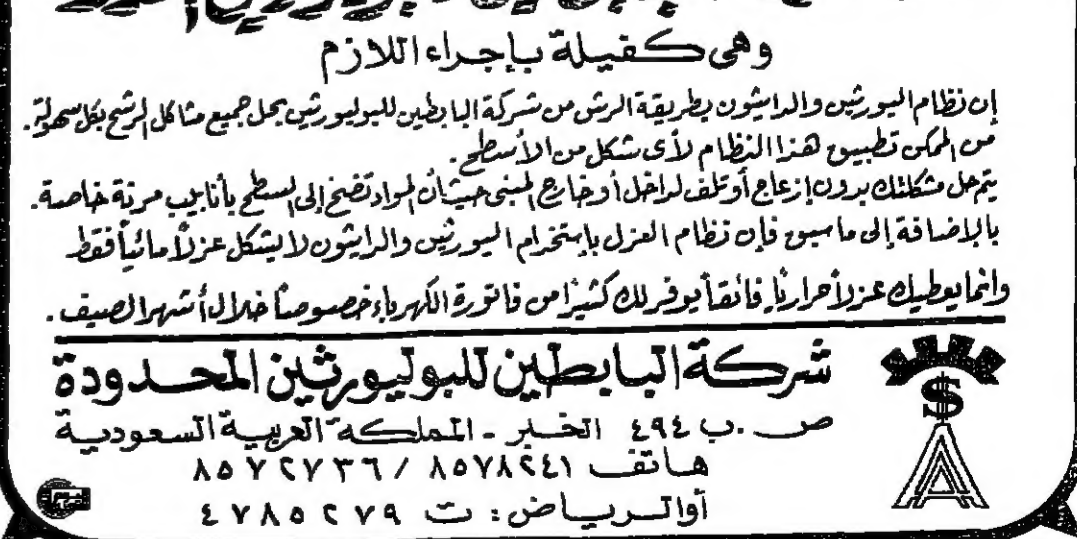 وهى كفيلة بإجراء اللازم
إن نظام اليورثين والدايثون بطريقة الرش من شركة البابطين للبوليورثين يحل جميع مشاكل الرشح بكل سهولة.
من الممكن تطبيق هذا النظام لأى شكل من الأسطح.
يتم حل مشكلتك بدون إزعاج أو تلف لداخل أو خارج المبنى حيث أن المواد تضخ إلى السطح بأنابيب مرنة خاصة.
بالإضافة إلى ما سبق فإن نظام العزل بإستخدام اليورثين والدايثون لا يشكل عزلاً مائياً فقط
وانما يعطيك عزلاً حرارياً فائقاً يوفر لك كثيراً من فاتورة الكهرباء خصوصاً خلال أشهر الصيف.
شركة البابطين للبوليورثين المحدودة
ص.ب ٤٩٤ الخبر - المملكة العربية السعودية
هاتف ٨٥٧٨٢٤١ / ٨٥٧٢٧٣٦
أو الرياض: ت ٤٧٨٥٢٧٩